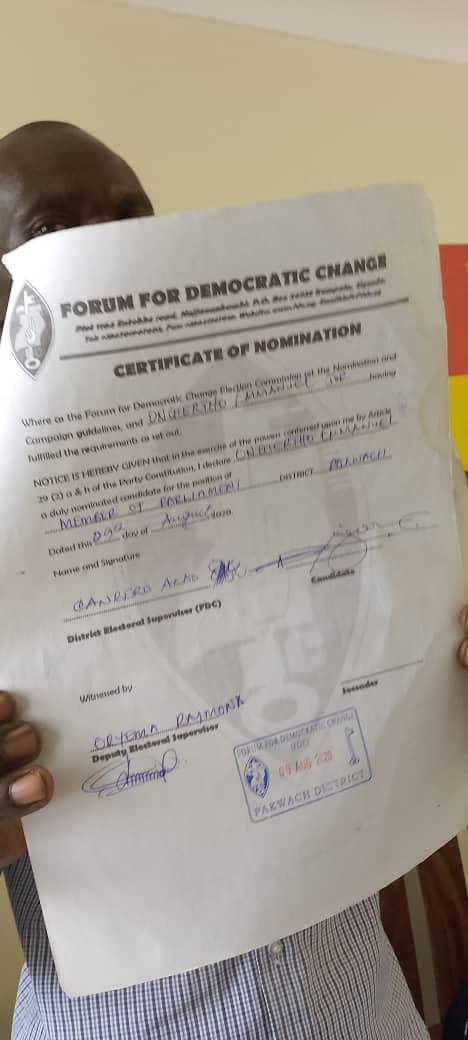 FORUM FOR DEMOCRATIC CHANGE
CERTIFICATE OF NOMINATION
Where as the Forum for Democratic Change Election Commission set the Nomination and
Campaign guidelines, and ONGIERTHO EMMANUEL JNR having
fulfilled the requirements as set out.
NOTICE IS HEREBY GIVEN that in the exercise of the powers conferred upon me by Article
29 (2) a & h of the Party Constitution, I declare ONGIERTHO EMMANUEL
a duly nominated candidate for the position of
MEMBER OF PARLIAMENT DISTRICT PAKWACH
Dated this 09th day of August 2020.
Name and Signature
Candidate
District Electoral Supervisor (FDC)
Witnessed by
Seconder
ORYEMA RAYMONK
Deputy Electoral Supervisor
FORUM FOR DEMOCRATIC CHANGE
(FDC)
09 AUG 2020
PAKWACH DISTRICT